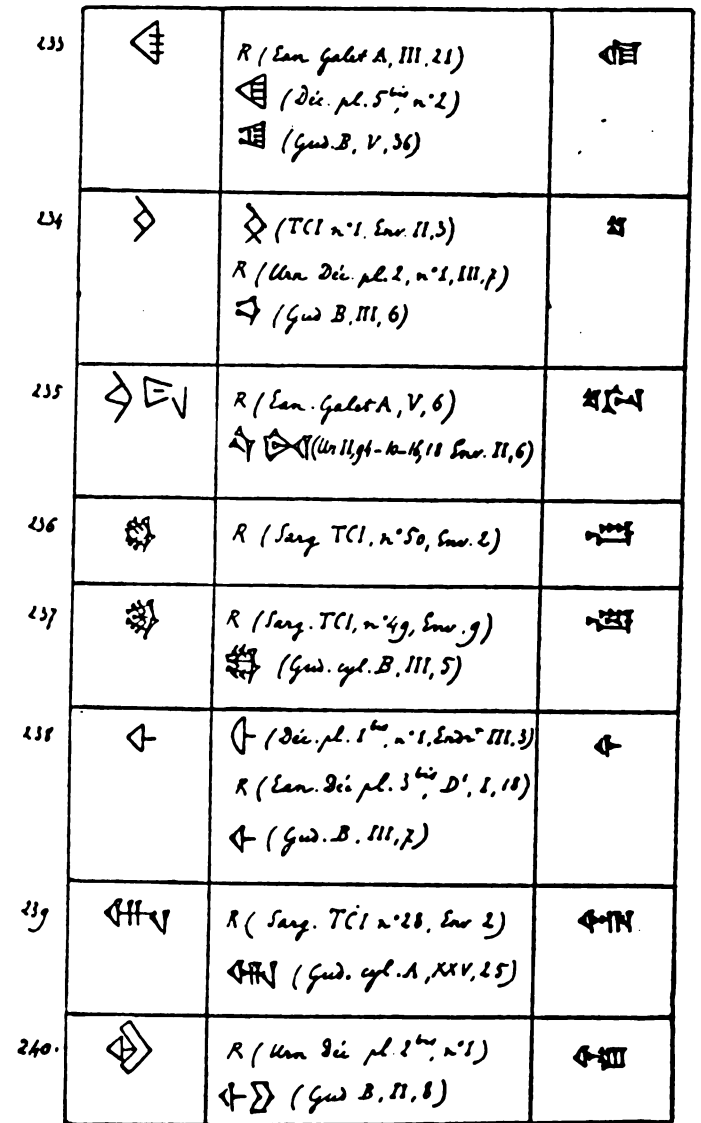 233
R (Ean Galet A, III, 21)
(Déc. pl. 5 bis, n°2)
(Gud. B, V, 36)
234
(TCI n°1. Env. II, 3)
R (Urn Déc. pl. 2, n°1, III, 7)
(Gud B, III, 6)
235
R (Ean. Galet A, V, 6)
(Ur II, 94-10-16, 18 Env. II, 6)
236
R (Sarg TCI, n°50, Env. 2)
237
R (Sarg. TCI, n°49, Env. 9)
(Gud. cyl. B, III, 5)
238
(Déc. pl. 1 bis, n°1, III, 3)
R (Ean. Déc pl. 3 bis, D', I, 18)
(Gud. B. III, 7)
239
R (Sarg. TCI n°28, Env 2)
(Gud. cyl. A, XXV, 25)
240.
R (Urn Déc pl. 2 bis, n°1)
(Gud B, II, 8)